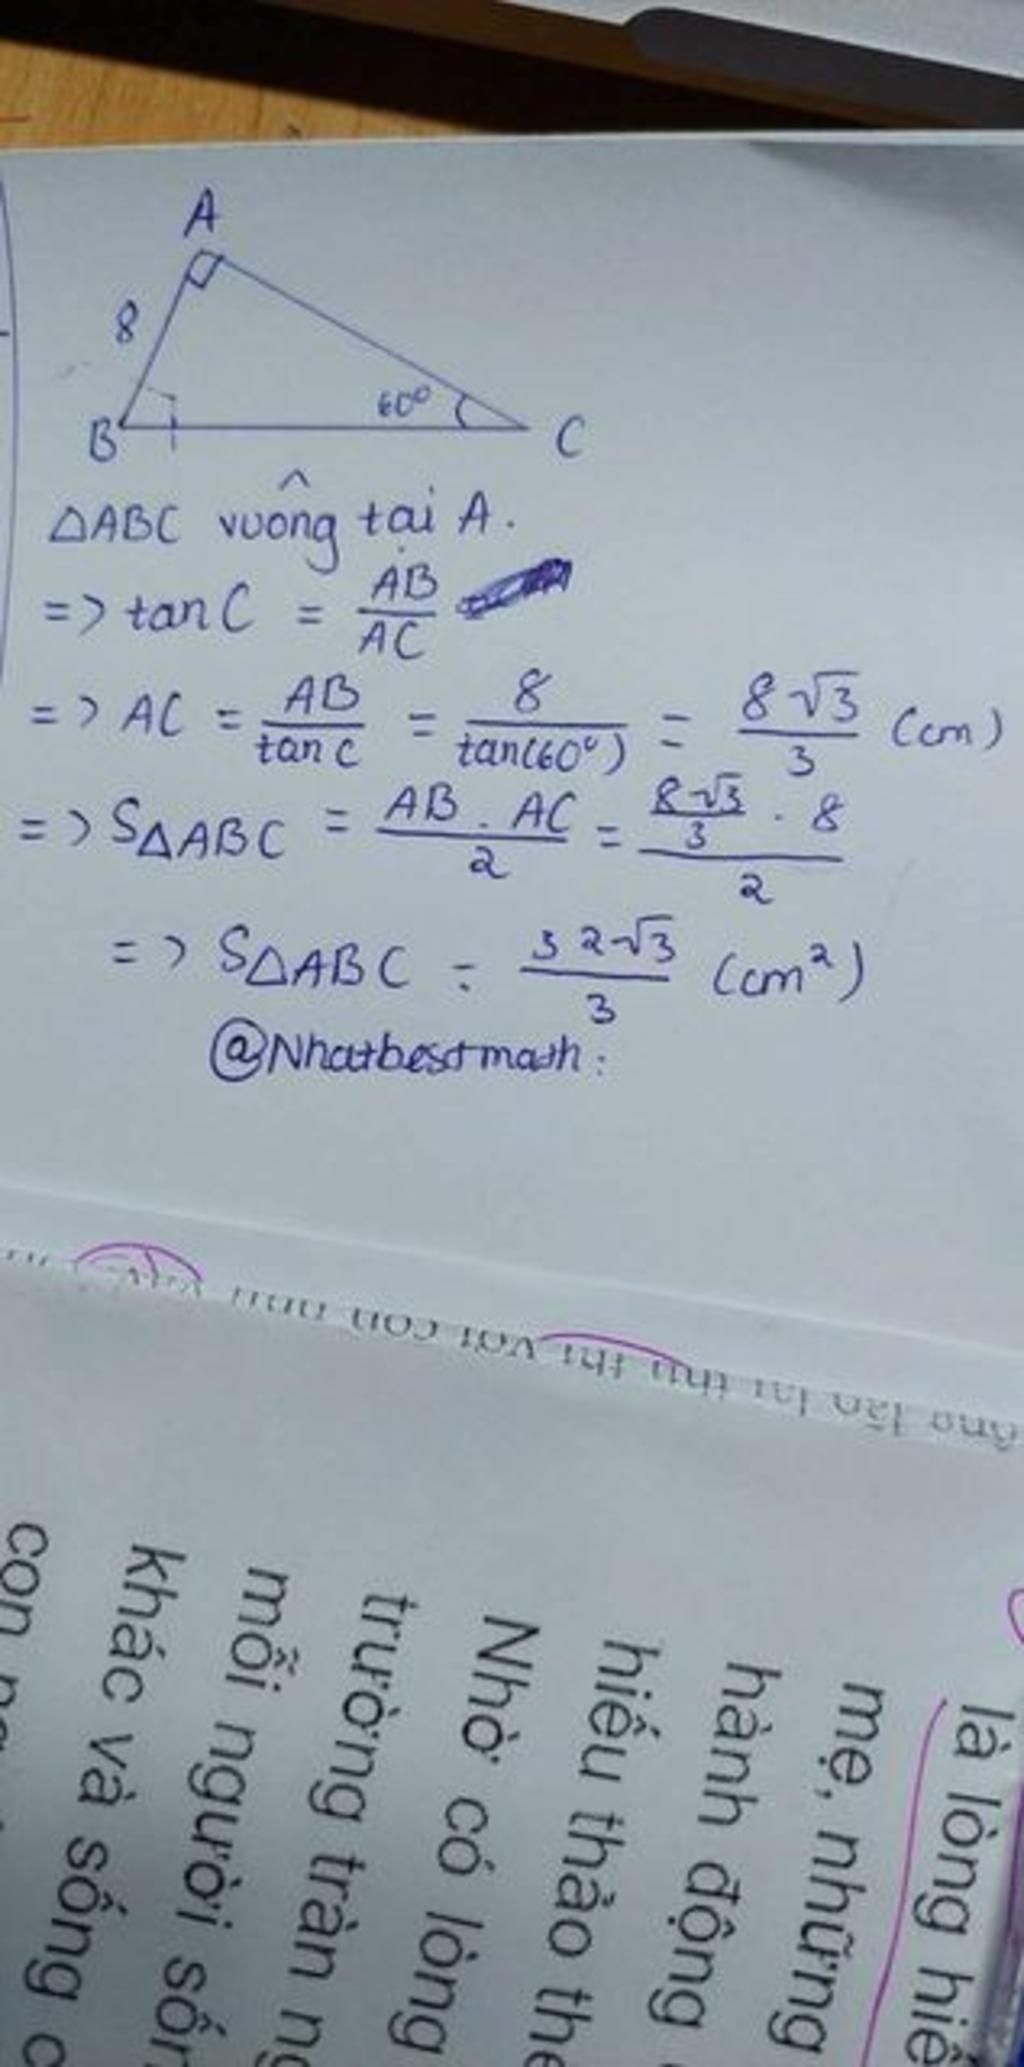 A
8
60°
B
C
ΔABC vuông tại A.
=> tan C = AB/AC
=> AC = AB/tan C = 8/tan(60°) = 8√3/3 (cm)
=> SΔABC = AB . AC/2 = 8√3/3 . 8/2
=> SΔABC = 32√3/3 (cm²)
@Nhatbestmath:
lão lại thú thì với con
là lòng hiế
mẹ, những
hành động
hiếu thảo the
Nhờ có lòng
trường tràn ng
mỗi người sốn
khác và sống c
con